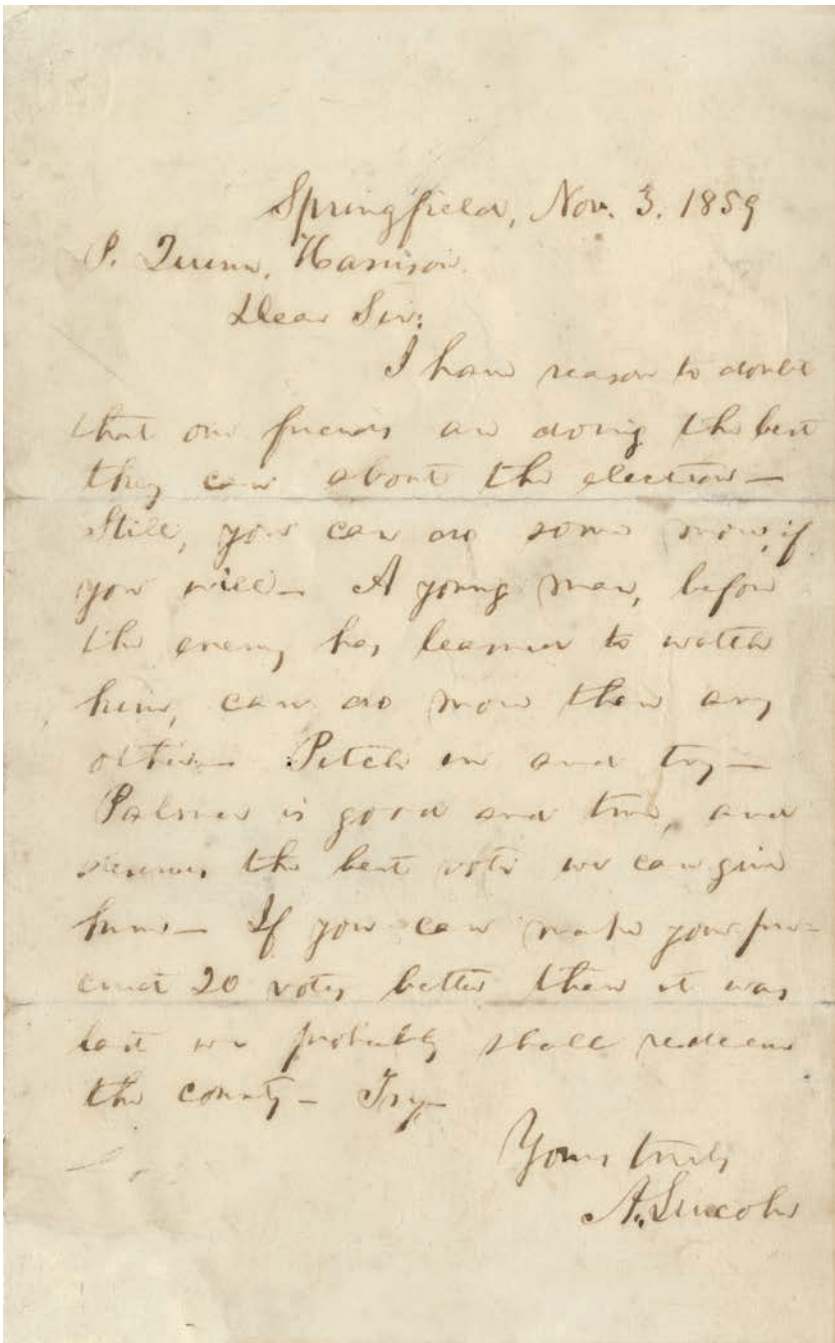 Springfield, Nov. 3. 1859
P. Quinn, Harrison.
Dear Sir:
I have reason to doubt
that our friends are doing the best
they can about the election—
Still, you can do some more, if
you will— A young man, before
the enemy has learned to watch
him, can do more than any
other— Pitch in and try—
Palmer is good and true, and
deserves the best vote we can give
him— If you can make your pre-
cinct 20 votes better than it was
last we probably shall redeem
the county— Try—
Yours truly
A. Lincoln